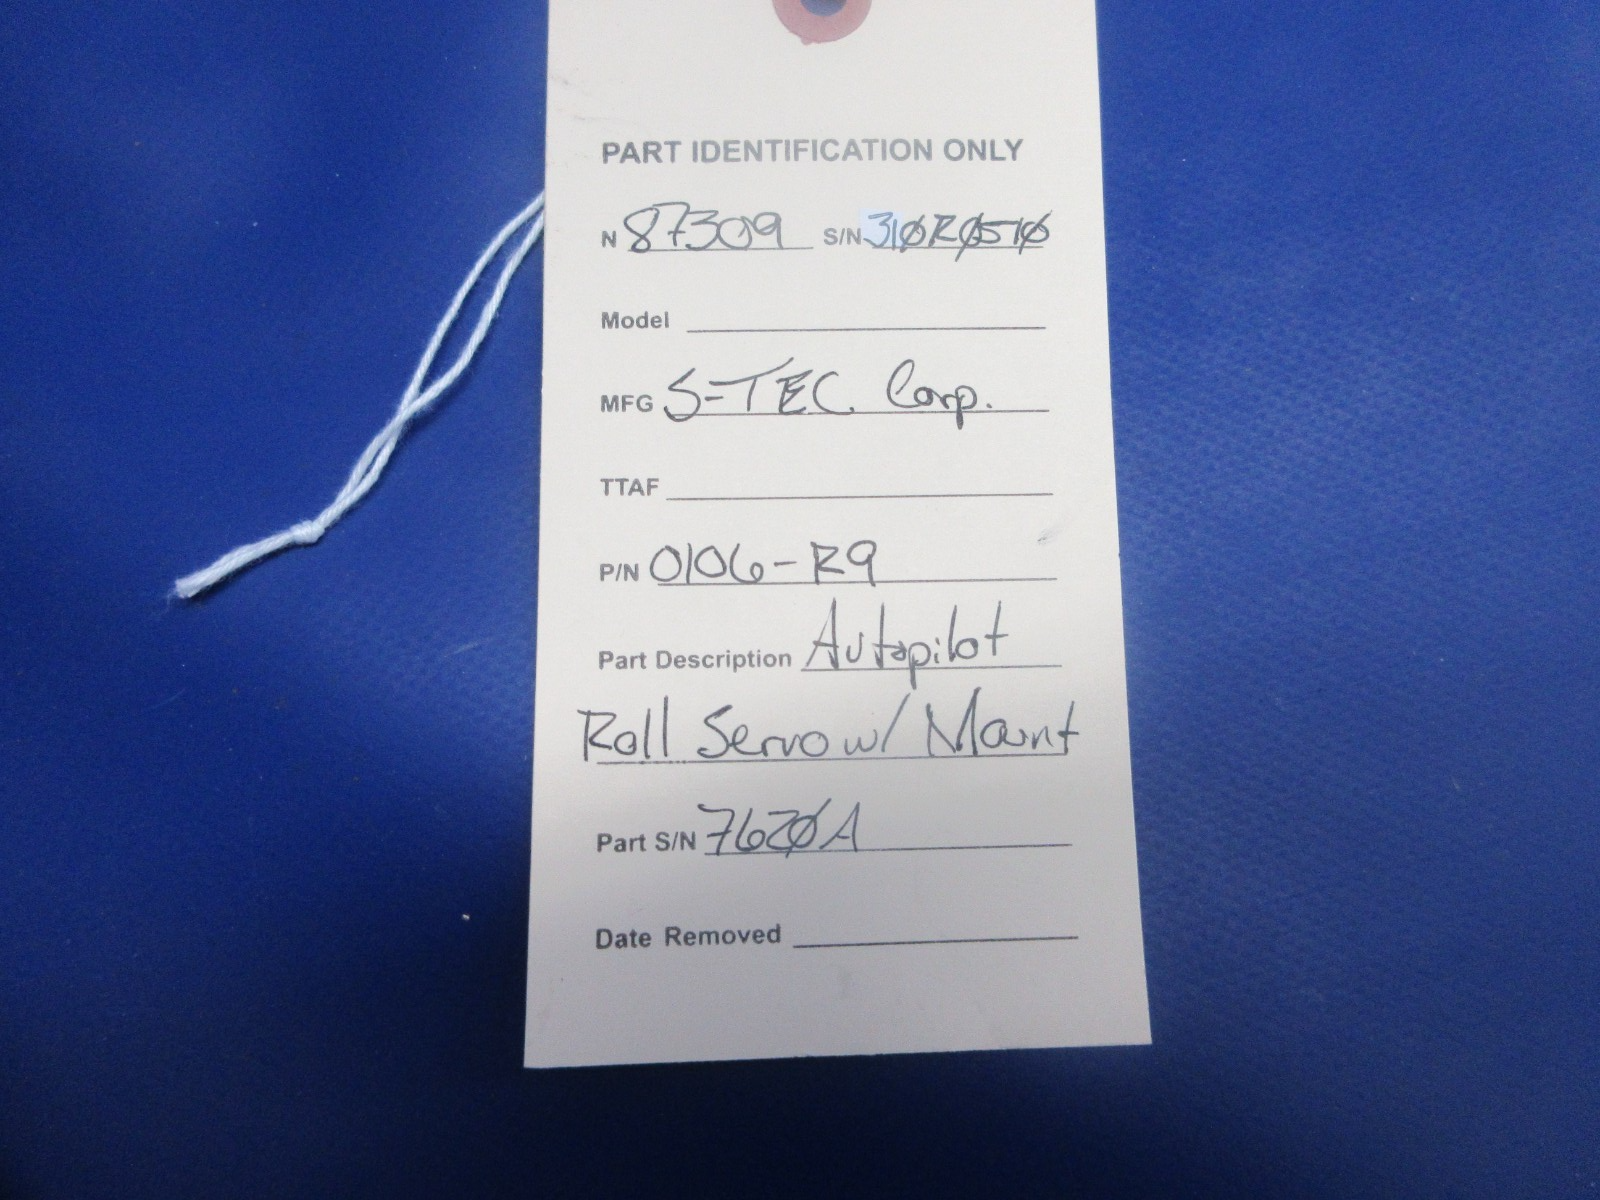 PART IDENTIFICATION ONLY
N 87309 S/N 310R0510
Model
MFG S-TEC Corp.
TTAF
P/N 0106-R9
Part Description Autopilot
Roll Servo w/ Mount
Part S/N 7620A
Date Removed